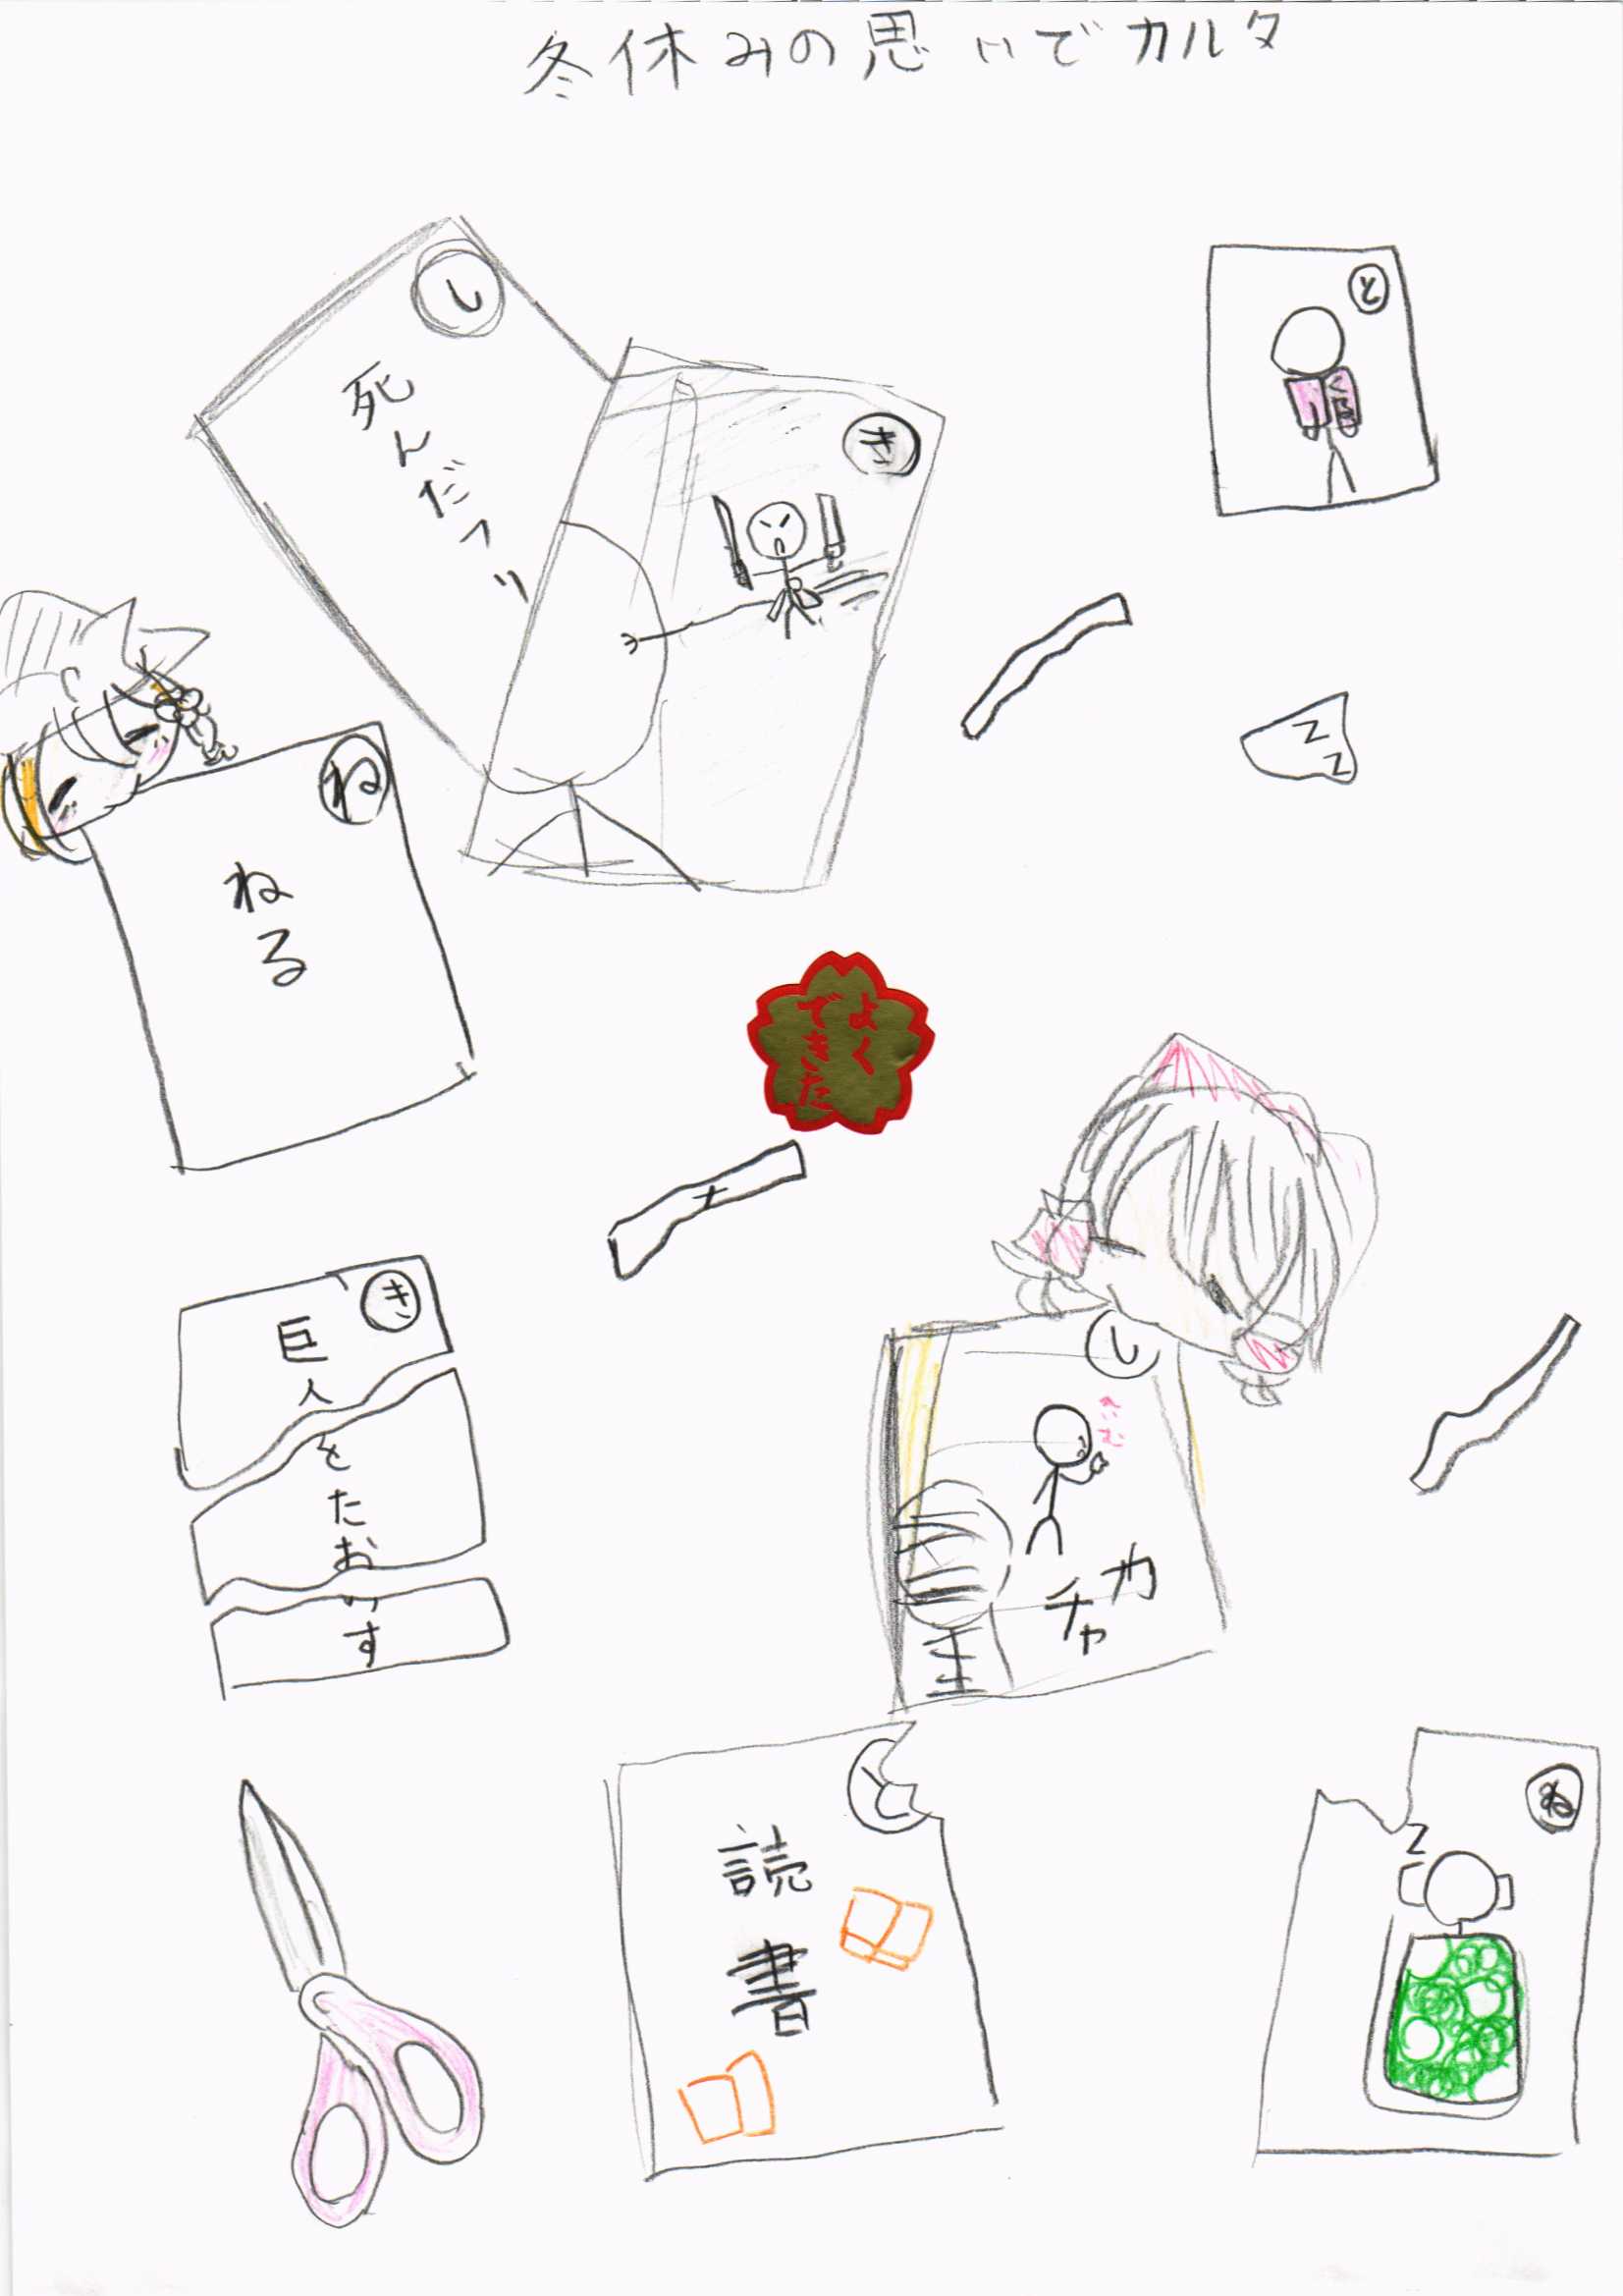 冬休みの思いでカルタ
し
死んだフリ
き
と
ね
ねる
zz
よく
できた
き
巨人をたおす
し
カチャ
と
読書
ね
z